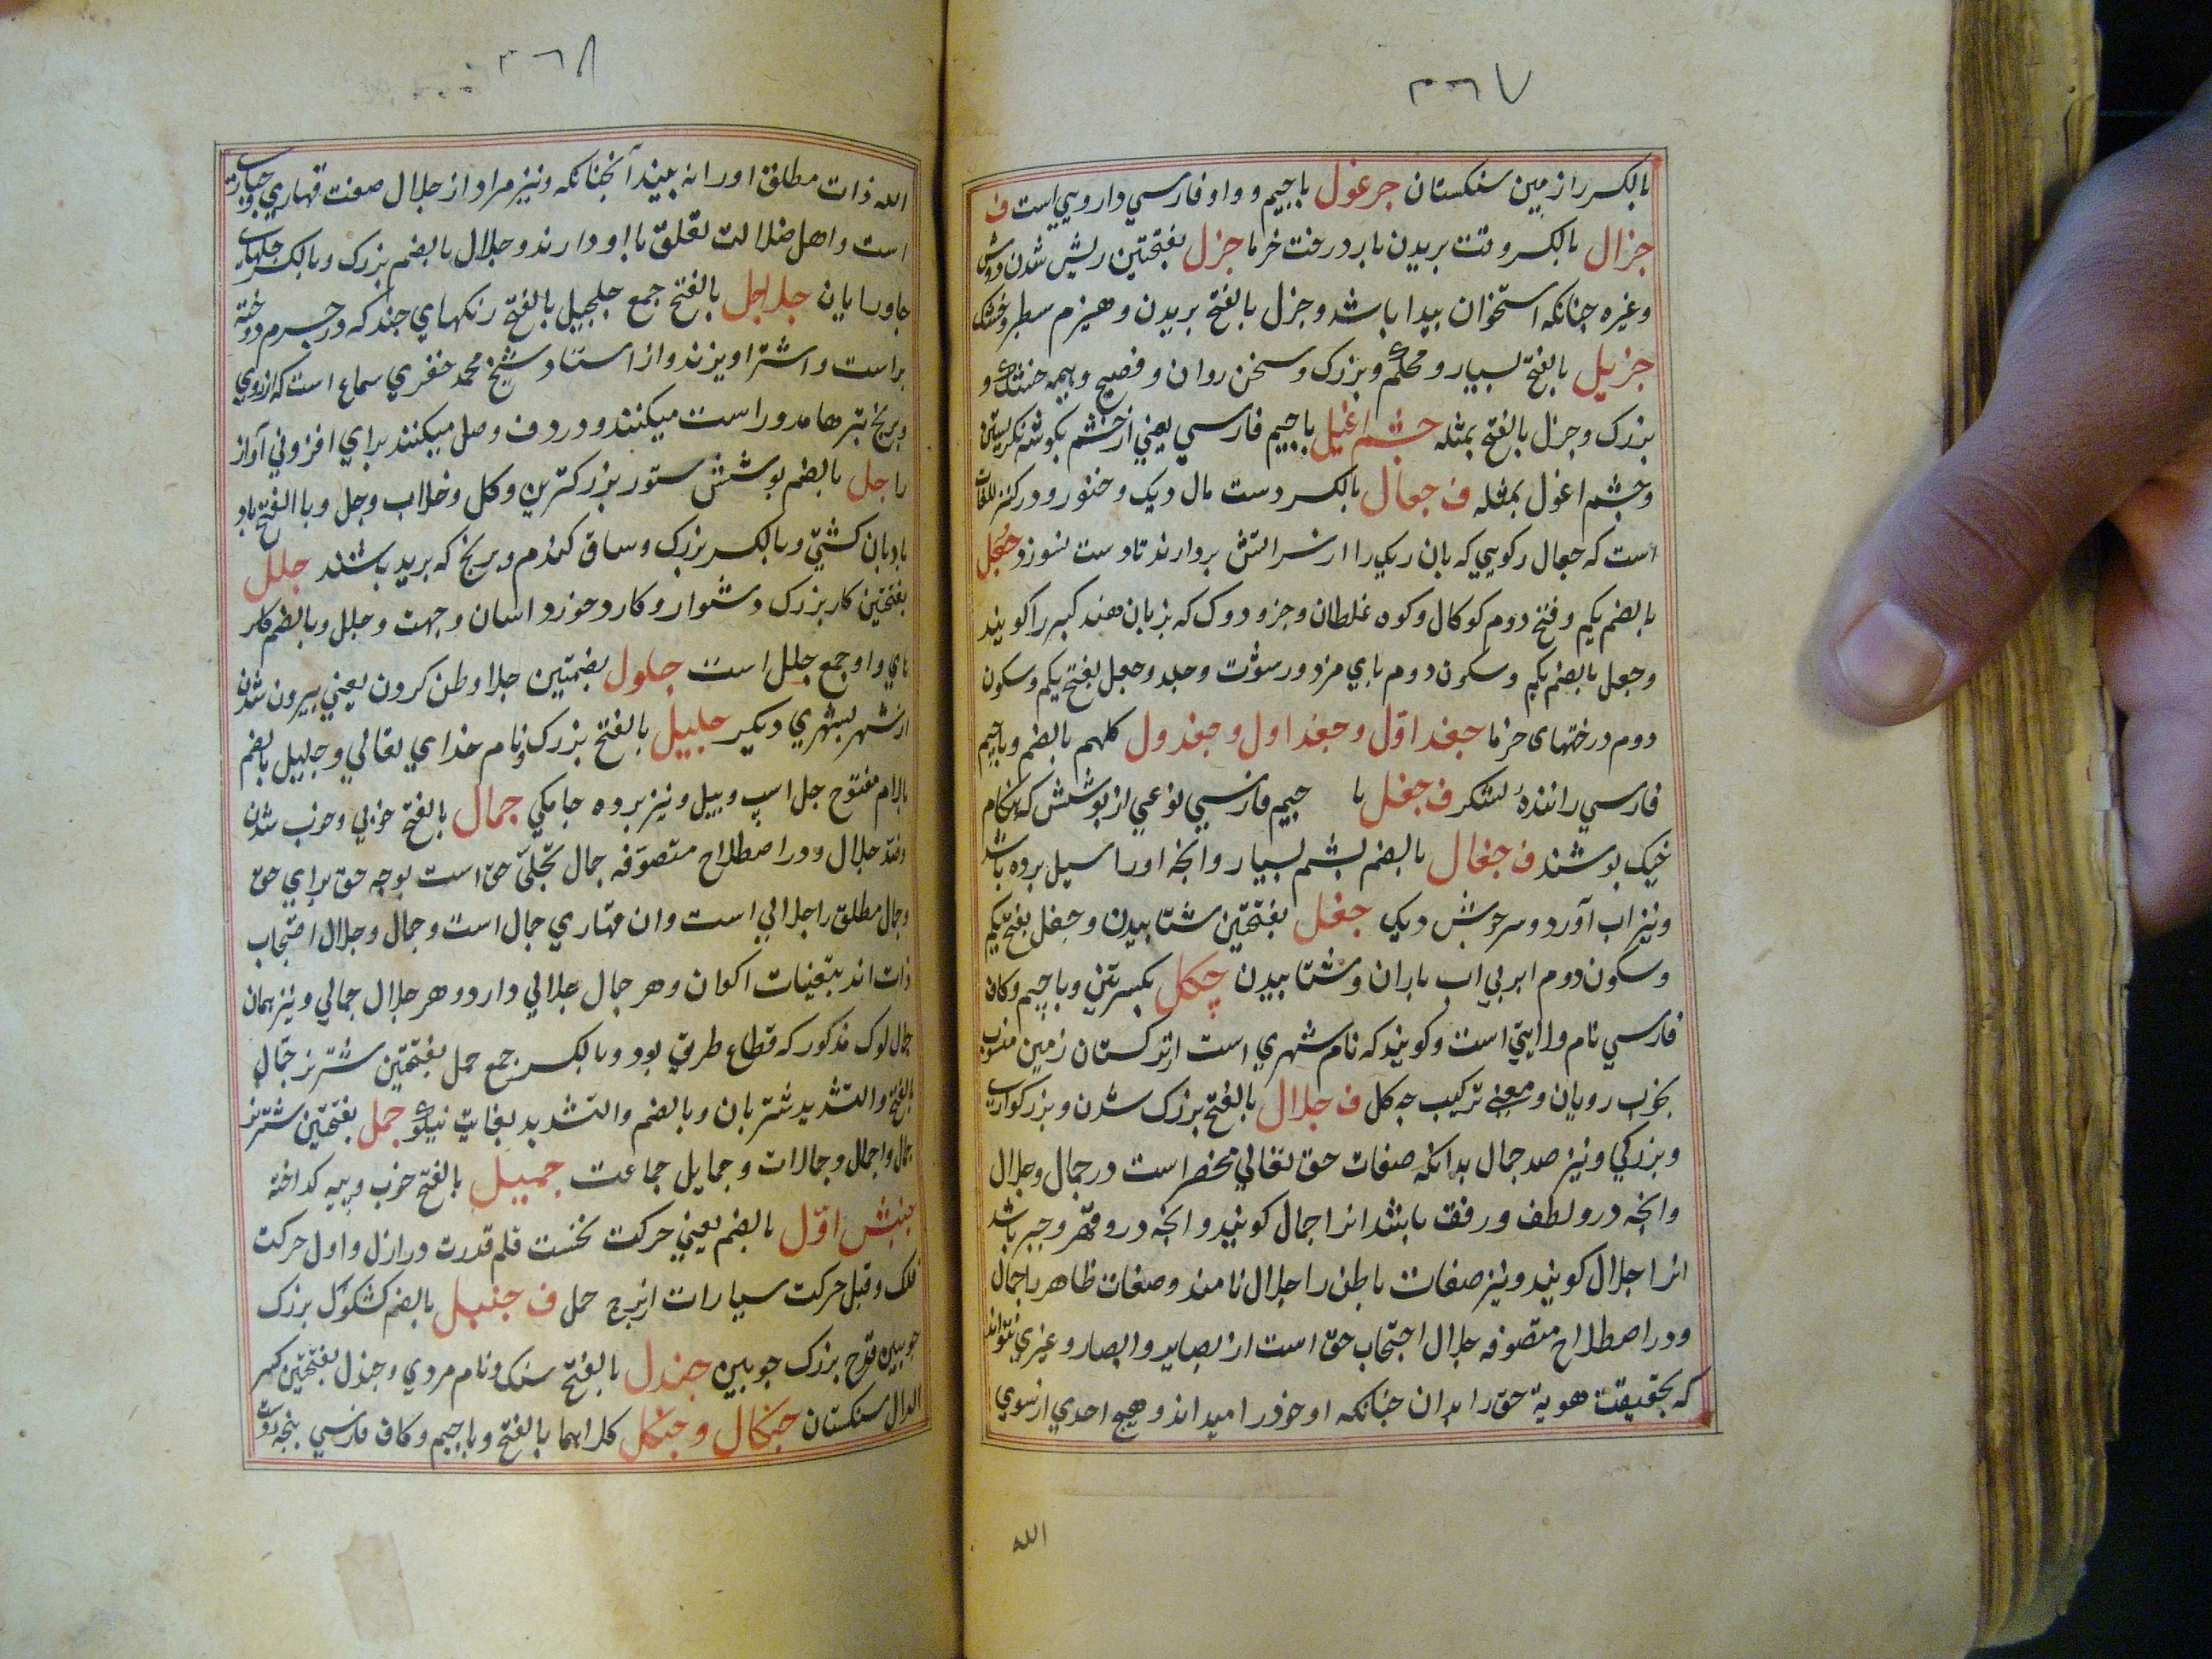 ٣٦٧
بالکسر از زمین سنکستان جرغول باجیم و واو فارسي داروییي است ف
جزال بالکسر وقت بریدن بار درخت خرما جزل بفتحتین ریش شدن دوش
وغیره چنانکه استخوان بیدا باشد وجزل بالفتح بریدن وهیزم سطبر وخشک
جزیل بالفتح بسیار و محکم وبزرک وسخن روان وفصیح وهیمه خشک و
بزرک وجزل بالفتح بمثله چشم اغیل باجیم فارسي یعني ازخشم بکوشه نکریستن
وچشم اغول بمثله ف جعال بالکسر دست مال دیک وخنور ودر کنز اللغات
است که جعال رکویي که بان دیک را از سر اتش بردارند تا دست نسوزد جُعَل
بالضم یکم وفتح دوم کوکال وکوه غلطان وخزو دوک که بزبان هند کبر را کویند
وجعل بالضم یکم وسکون دوم پاي مزد ورشوت وجلد وجعل بفتح یکم وسکون
دوم درختهای خرما جغد اوّل وجغد اول وجغدول کلهم بالضم وباجیم
فارسي رانندۀ لشکر ف جغل با جیم فارسي نوعي از پوشش که هنکام
خیک بوشند ف جفال بالضم پشم بسیار وانچه اورا سیل برده باشد
ونیز اب آورد وسرجوش دیک جفل بفتحتین شتابیدن وجفل بفتح یکم
وسکون دوم ابر بي اب باران وشتابیدن چکل بکسرتین وباجیم وکاف
فارسي نام ولایتي است وکویند که نام شهري است از ترکستان زمین منسوب
بخوب رویان ومعني ترکیب چه کل ف جلال بالفتح بزرک شدن وبزرکواري
وبزرکي ونیز ضد جمال بدانکه صفات حق تعالي منحصر است در جمال وجلال
وانچه درو لطف ورفق باشد انرا جمال کویند وانچه درو قهر وجبر باشد
انرا جلال کویند ونیز صفات باطن را جلال نامند وصفات ظاهر را جمال
ودر اصطلاح متصوفه جلال احتجاب حق است از بصایر وابصار وغیري نتواند
که بحقیقت هویة حق را بداند چنانکه او خود را میداند وهیچ احدي از سوي
الله
٣٦٨
الله ذات مطلق اورا نه بیند آنچنانکه ونیز مراد از جلال صفت قهاري وجباري
است واهل ضلالت تعلق باو دارند وجلال بالضم بزرک وبالکسر جلهاي
چاورپایان جلاجل بالفتح جمع جلجیل بالفتح زنکهاي چند که در چرم دوخته
براسب واشتر اویزند واز استاد شیخ محمد خفري سماع است که از روي
وبرنج تیرها مدور راست میکنند ودر دف وصل میکنند براي افزوني آواز
را جل بالضم پوشش ستور بزرکترین وکل وخلاب وجل وبا الفتح باد
بادبان کشتي وبالکسر بزرک وساق کندم وبرنج که برید باشند جلل
بفتحتین کار بزرک دشوار وکار خورد اسان وجهت وجلل وبالضم کار
هاي واو جمع جلل است جلول بضمتین جلا وطن کردن یعني بیرون شدن
از شهر بشهري دیکر جلیل بالفتح بزرک ونام خداي تعالي وجلیل بالضم
بالام مفتوح جل اسپ وبیل ونیز برده جامکي جمال بالفتح خوبي وخوب شدن
وضد جلال ودر اصطلاح متصوّفه جمال تجلّي حق است بوجه حق براي حق
وجمال مطلق را جلالي است وان قهاري جمال است وجمال وجلال احتجاب
ذات اند بتعینات اکوان وهر جمال جلالي دارد وهر جلال جمالي ونیز همان
جمال لوک مذکور که قطاع طریق بود وبالکسر جمع جمل بفتحتین شتر نر جمّال
بالفتح والتشدید شتربان وبالضم والتشدید بغایت نیکو جمل بفتحتین شتر نر
جمال واجمال وجمالات وجمایل جماعت جمیل بالفتح خوب وپیه کداخته
جنبش اوّل بالضم یعني حرکت نخست قلم قدرت در ازل واول حرکت
فلک وقبل حرکت سیارات از برج حمل ف جنبل بالضم کشکول بزرک
جوبین قدح بزرک جوبین جندل بالفتح سنک ونام مردي وجندل بفتحتین کسر
الدال سنکستان جنکال وجنکل کلاهما بالفتح وباجیم وکاف فارسي بنجه دست